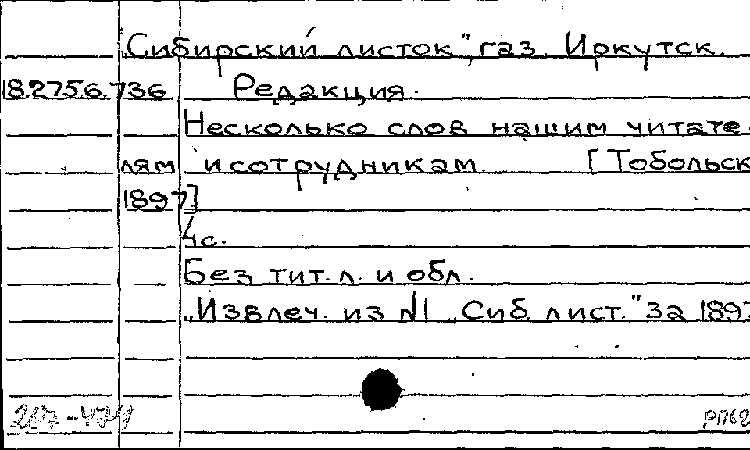 „Сибирский листок", газ. Иркутск.
18.2756.736 Редакция.
Несколько слов нашим читате
лям и сотрудникам [Тобольск
1897]
4с.
Без тит. л. и обл.
„Извлеч. из №1 „Сиб. лист." за 189